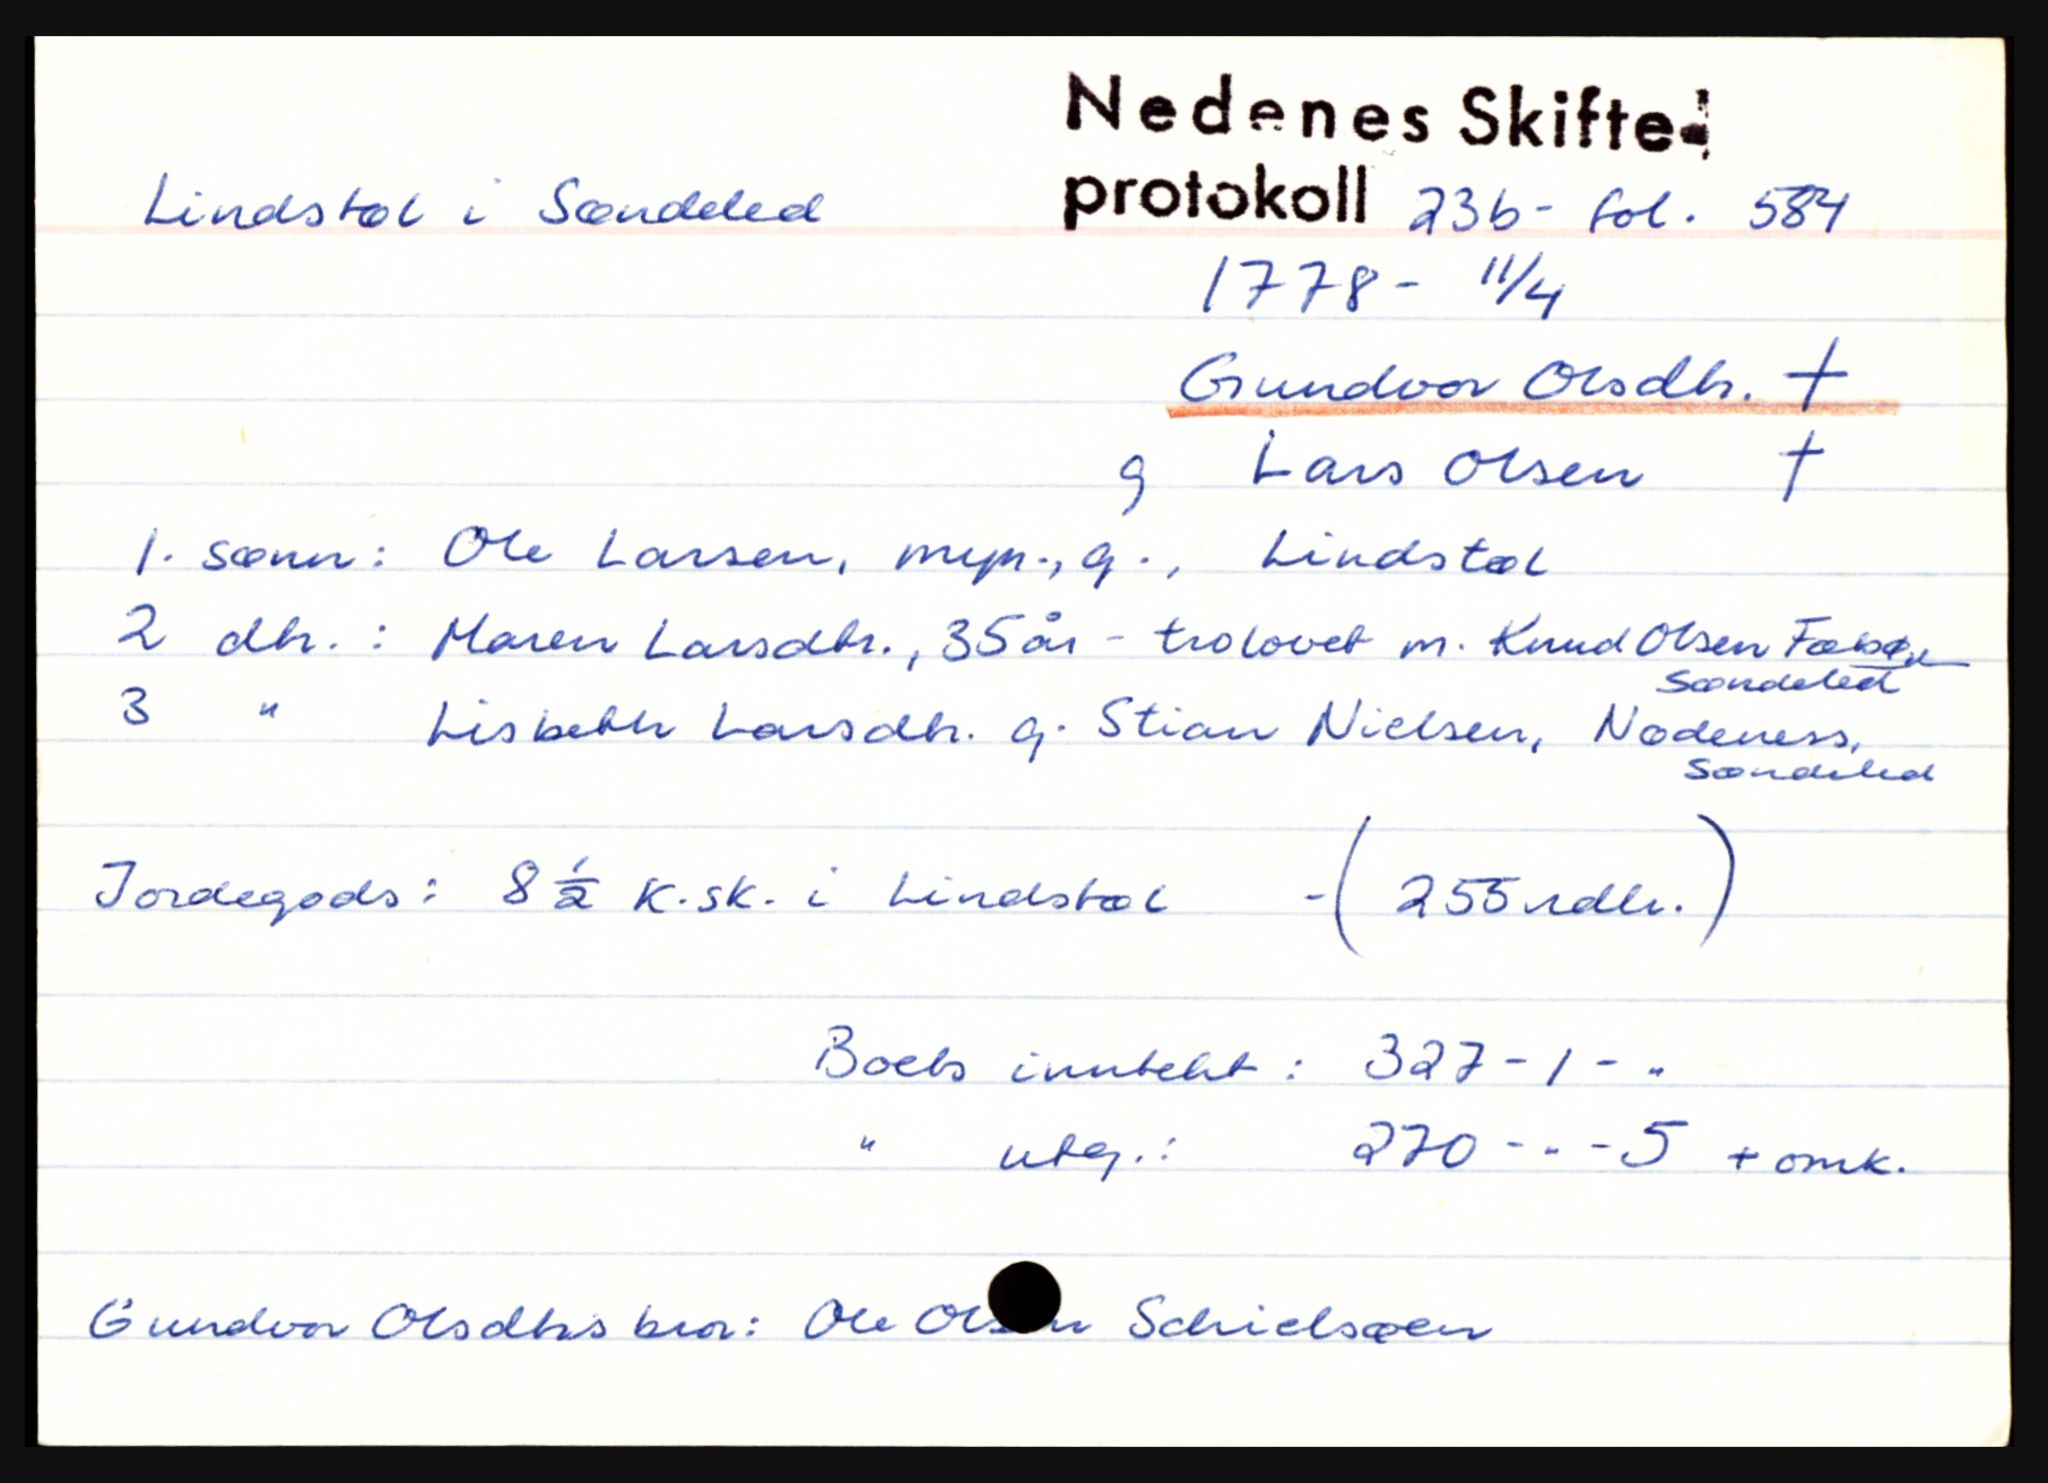 Nedenes Skifte-
Lindstøl i Søndeled protokoll 23b- fol. 584
1778- 11/4
Gundvor Olsdtr. †
g Lars Olsen †
1. sønn: Ole Larsen, myn., g., Lindstøl
2 dtr. : Maren Larsdtr., 35 år - trolovet m. Knud Olsen
Søndeled
3 " Lisbeth Larsdtr. g. Stian Nielsen, Nødeness,
Søndeled
Jordegods: 8 1/2 K.sk. i Lindstøl -(255 rdlr.)
Boets inntekt : 327 - 1 - "
" utg. : 270 - " - 5 + omk.
Gundvor Olsdtrs bror: Ole Olsen Schielsøen